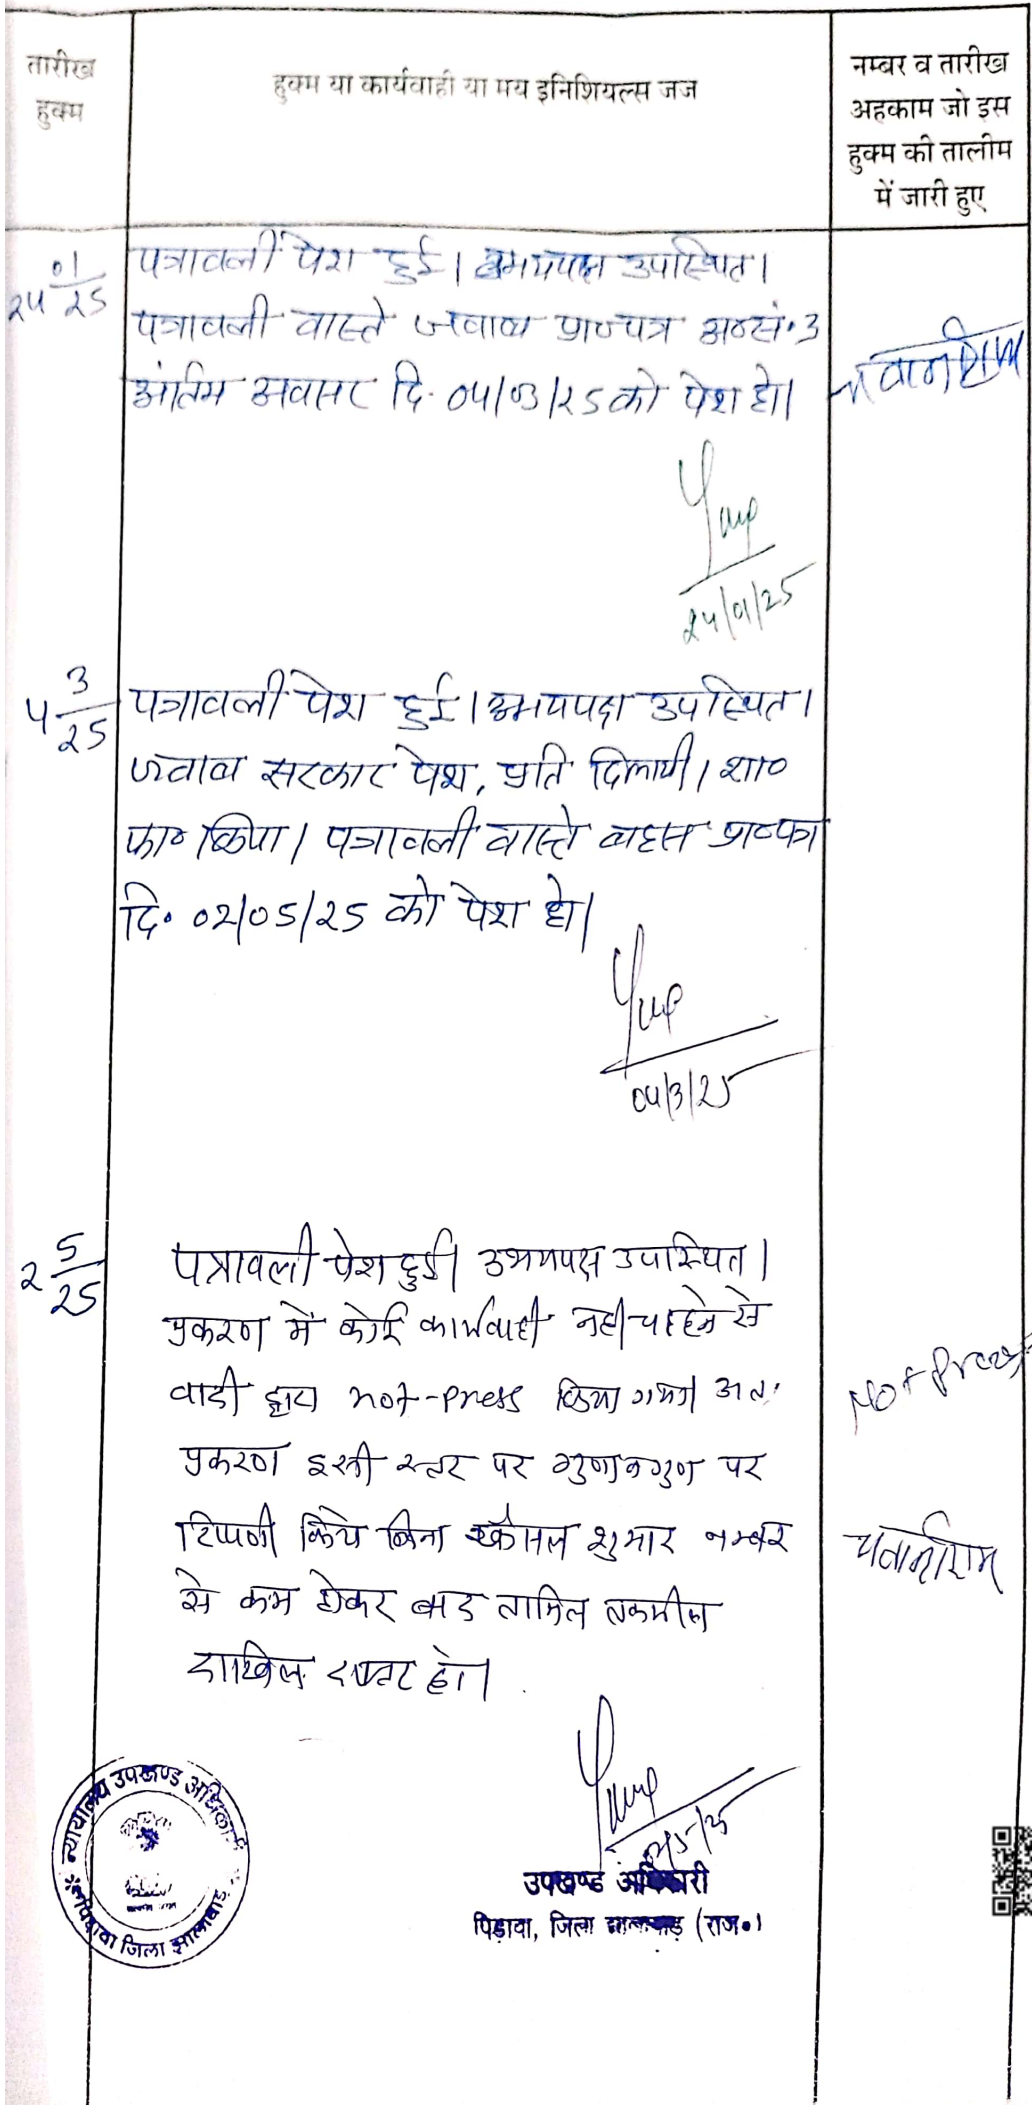 तारीख
हुक्म
हुक्म या कार्यवाही या मय इनिशियल्स जज
नम्बर व तारीख
अहकाम जो इस
हुक्म की तालीम
में जारी हुए
24 01/25
पत्रावली पेश हुई। उभयपक्ष उपस्थित।
पत्रावली वास्ते जवाब प्रा०पत्र अ०सं० 3
अंतिम अवसर दि. 04/03/25 को पेश हो।
24/01/25
4 3/25
पत्रावली पेश हुई। उभयपक्ष उपस्थित।
जवाब सरकार पेश, प्रति दिलायी। शा०
फा० किया। पत्रावली वास्ते बहस प्रा०पत्र
दि. 02/05/25 को पेश हो।
04/3/25
2 5/25
पत्रावली पेश हुई। उभयपक्ष उपस्थित।
प्रकरण में कोई कार्यवाही नही चाहने से
वादी द्वारा not-press किया गया। अतः
प्रकरण इसी स्तर पर गुणावगुण पर
टिप्पणी किये बिना फैसल शुमार नम्बर
से कम होकर बाद तामिल तकमील
दाखिल दफ्तर हो।
Not Press
उपखण्ड अधिकारी
पिड़ावा, जिला झालावाड़ (राज०)
न्यायालय उपखण्ड अधिकारी
पिड़ावा जिला झालावाड़